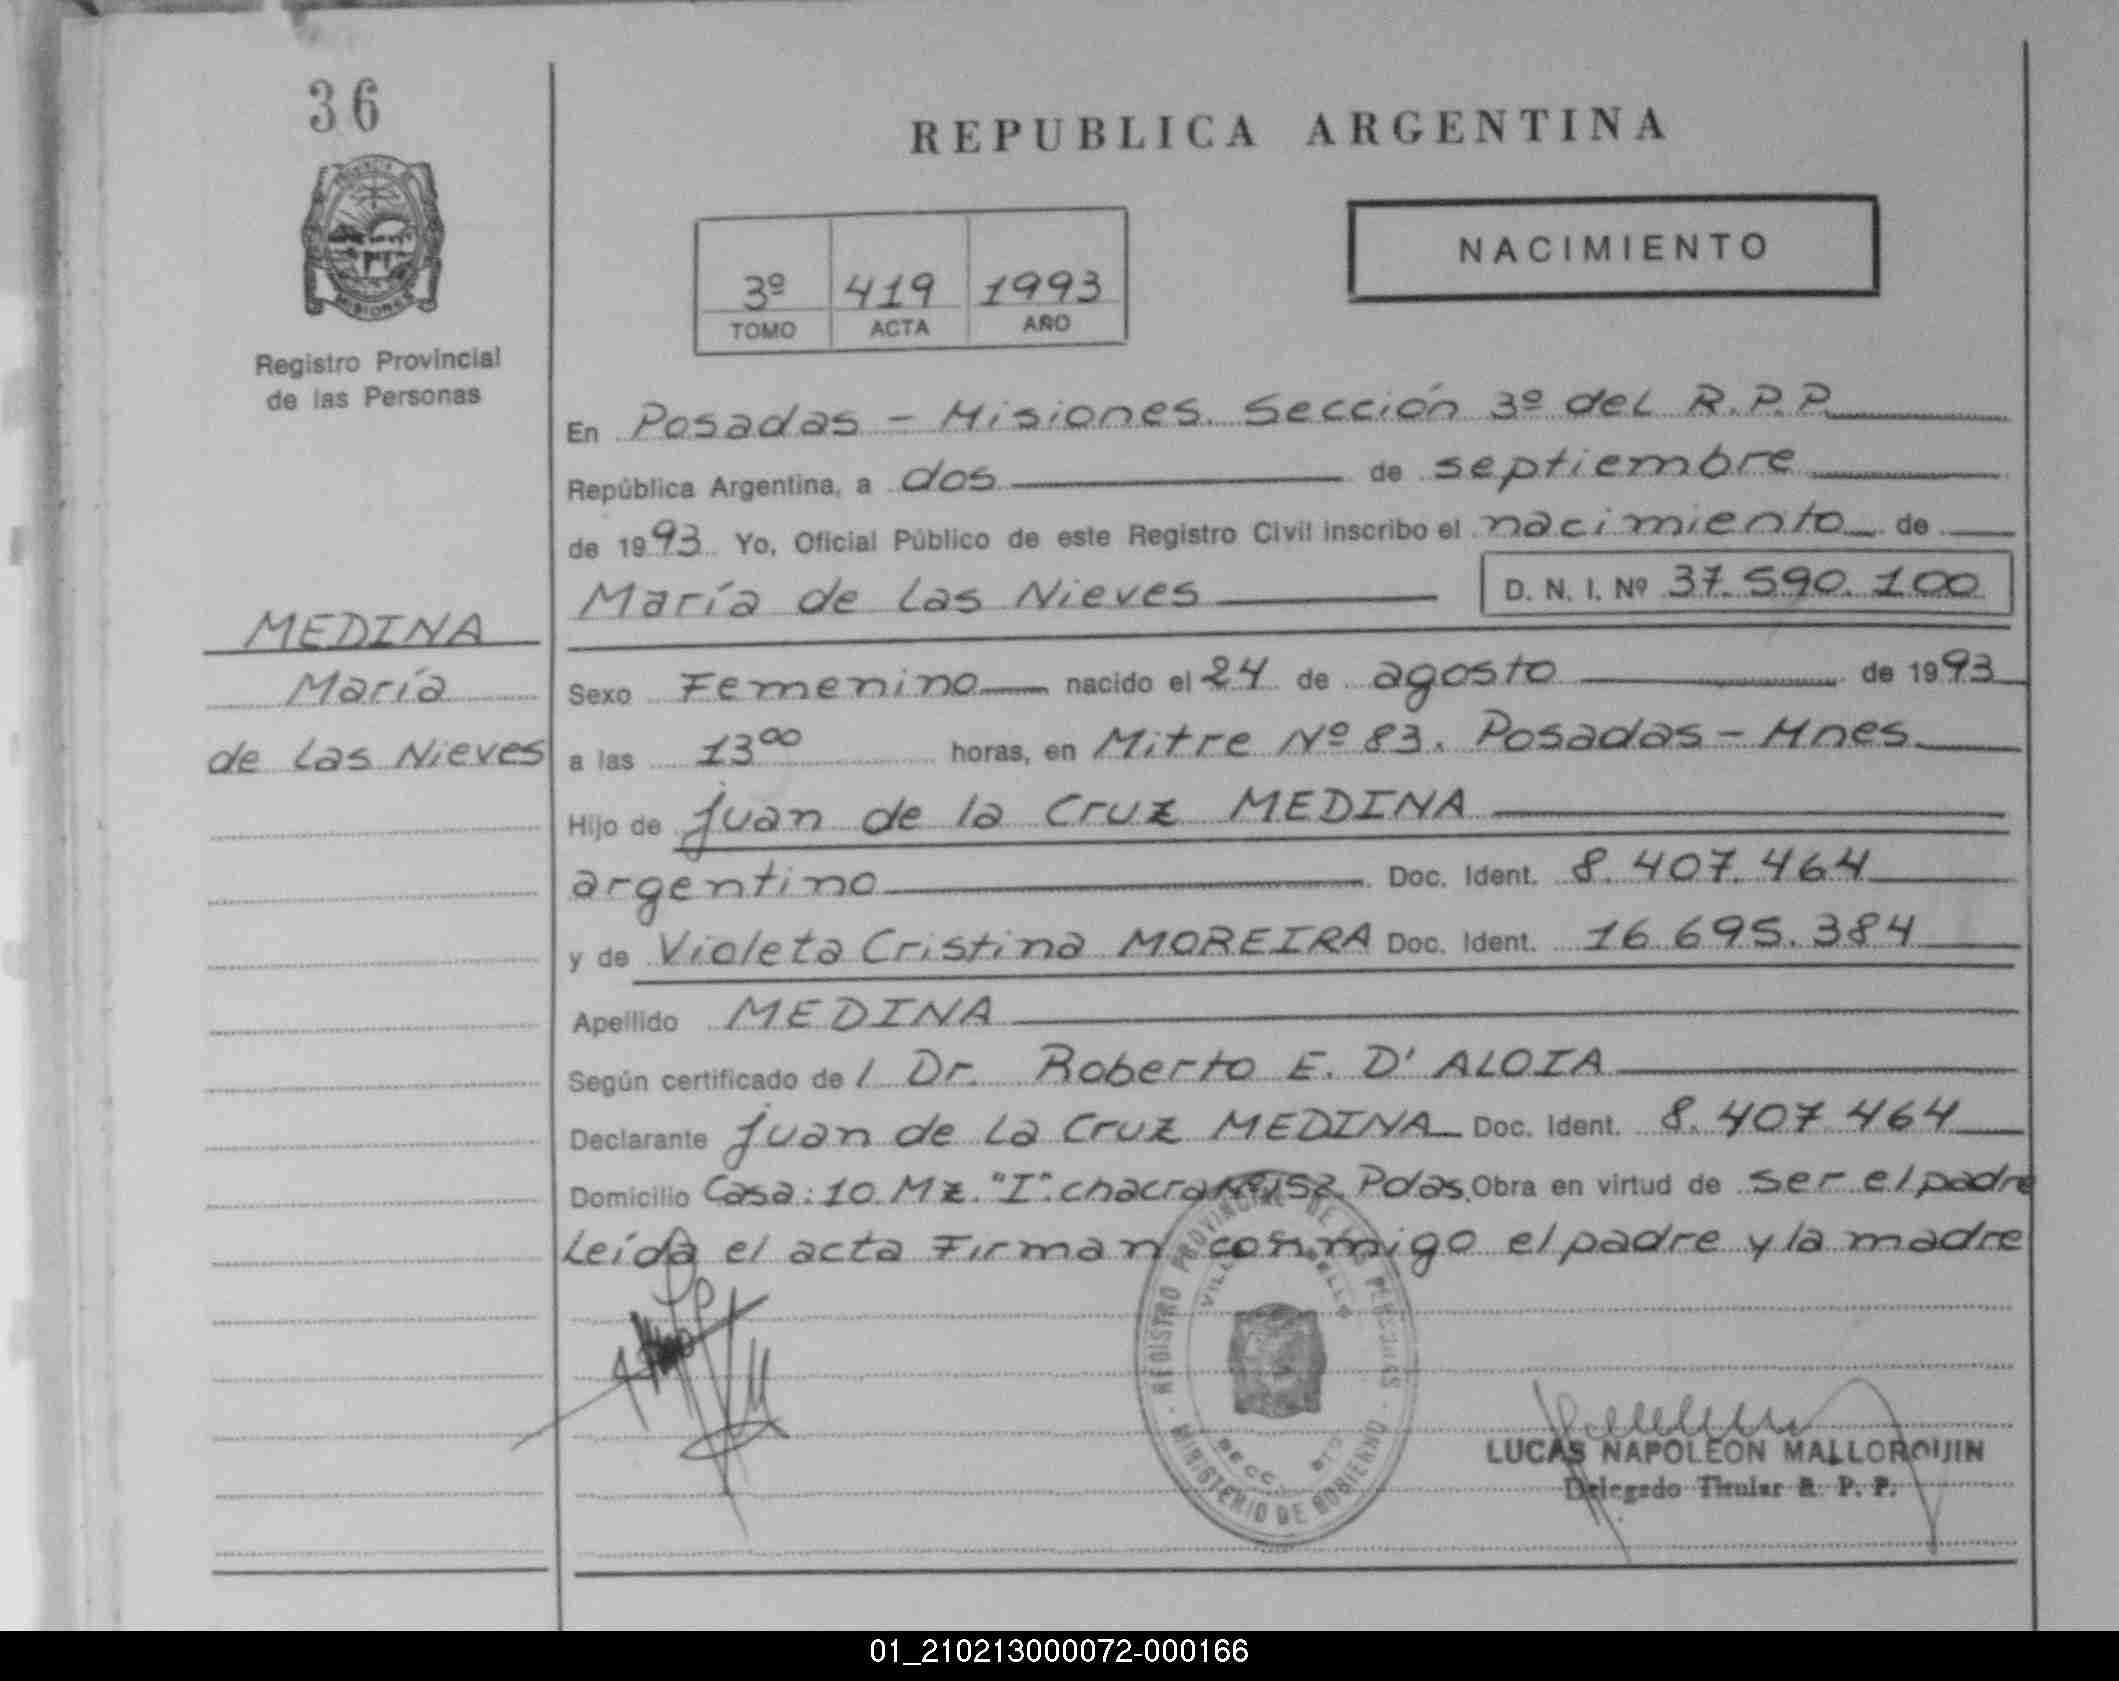 36
REPUBLICA ARGENTINA
MISIONES
Registro Provincial
de las Personas
3º 419 1993
TOMO ACTA AÑO
NACIMIENTO
En Posadas - Misiones. Sección 3º del R.P.P.
República Argentina, a dos de septiembre
de 1993 Yo, Oficial Público de este Registro Civil inscribo el nacimiento de
María de Las Nieves D. N. I. Nº 37.590.100
MEDINA
María
de Las Nieves
Sexo Femenino nacido el 24 de agosto de 1993
a las 13⁰⁰ horas, en Mitre Nº 83. Posadas - Mnes
Hijo de juan de la Cruz MEDINA
argentino Doc. Ident. 8.407.464
y de Violeta Cristina MOREIRA Doc. Ident. 16.695.384
Apellido MEDINA
Según certificado de / Dr. Roberto E. D'ALOIA
Declarante juan de La Cruz MEDINA Doc. Ident. 8.407.464
Domicilio Casa: 10 Mz. "I". chacra Nº 152 Pdas. Obra en virtud de ser el padre
Leída el acta Firman conmigo el padre y la madre
REGISTRO PROVINCIAL DE LAS PERSONAS
MINISTERIO DE GOBIERNO
LUCAS NAPOLEON MALLORQUIN
Delegado Titular R. P. P.
01_210213000072-000166